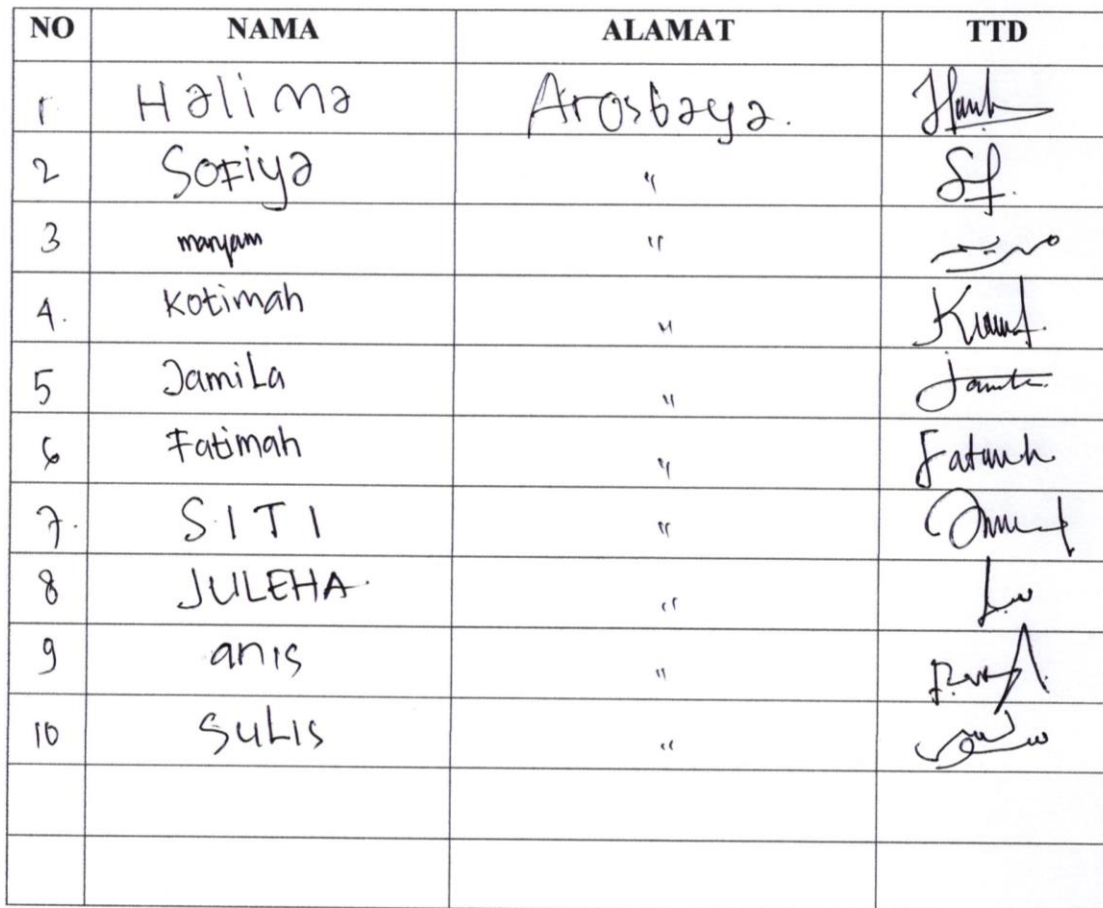 NO NAMA ALAMAT TTD
1. Halima Arosbaya.
2 Sofiya "
3 maryam " مريم
4. Kotimah "
5 Jamila "
6 Fatimah " Fatimah
7. SITI "
8 JULEHA "
9 anis "
10 SuLis "